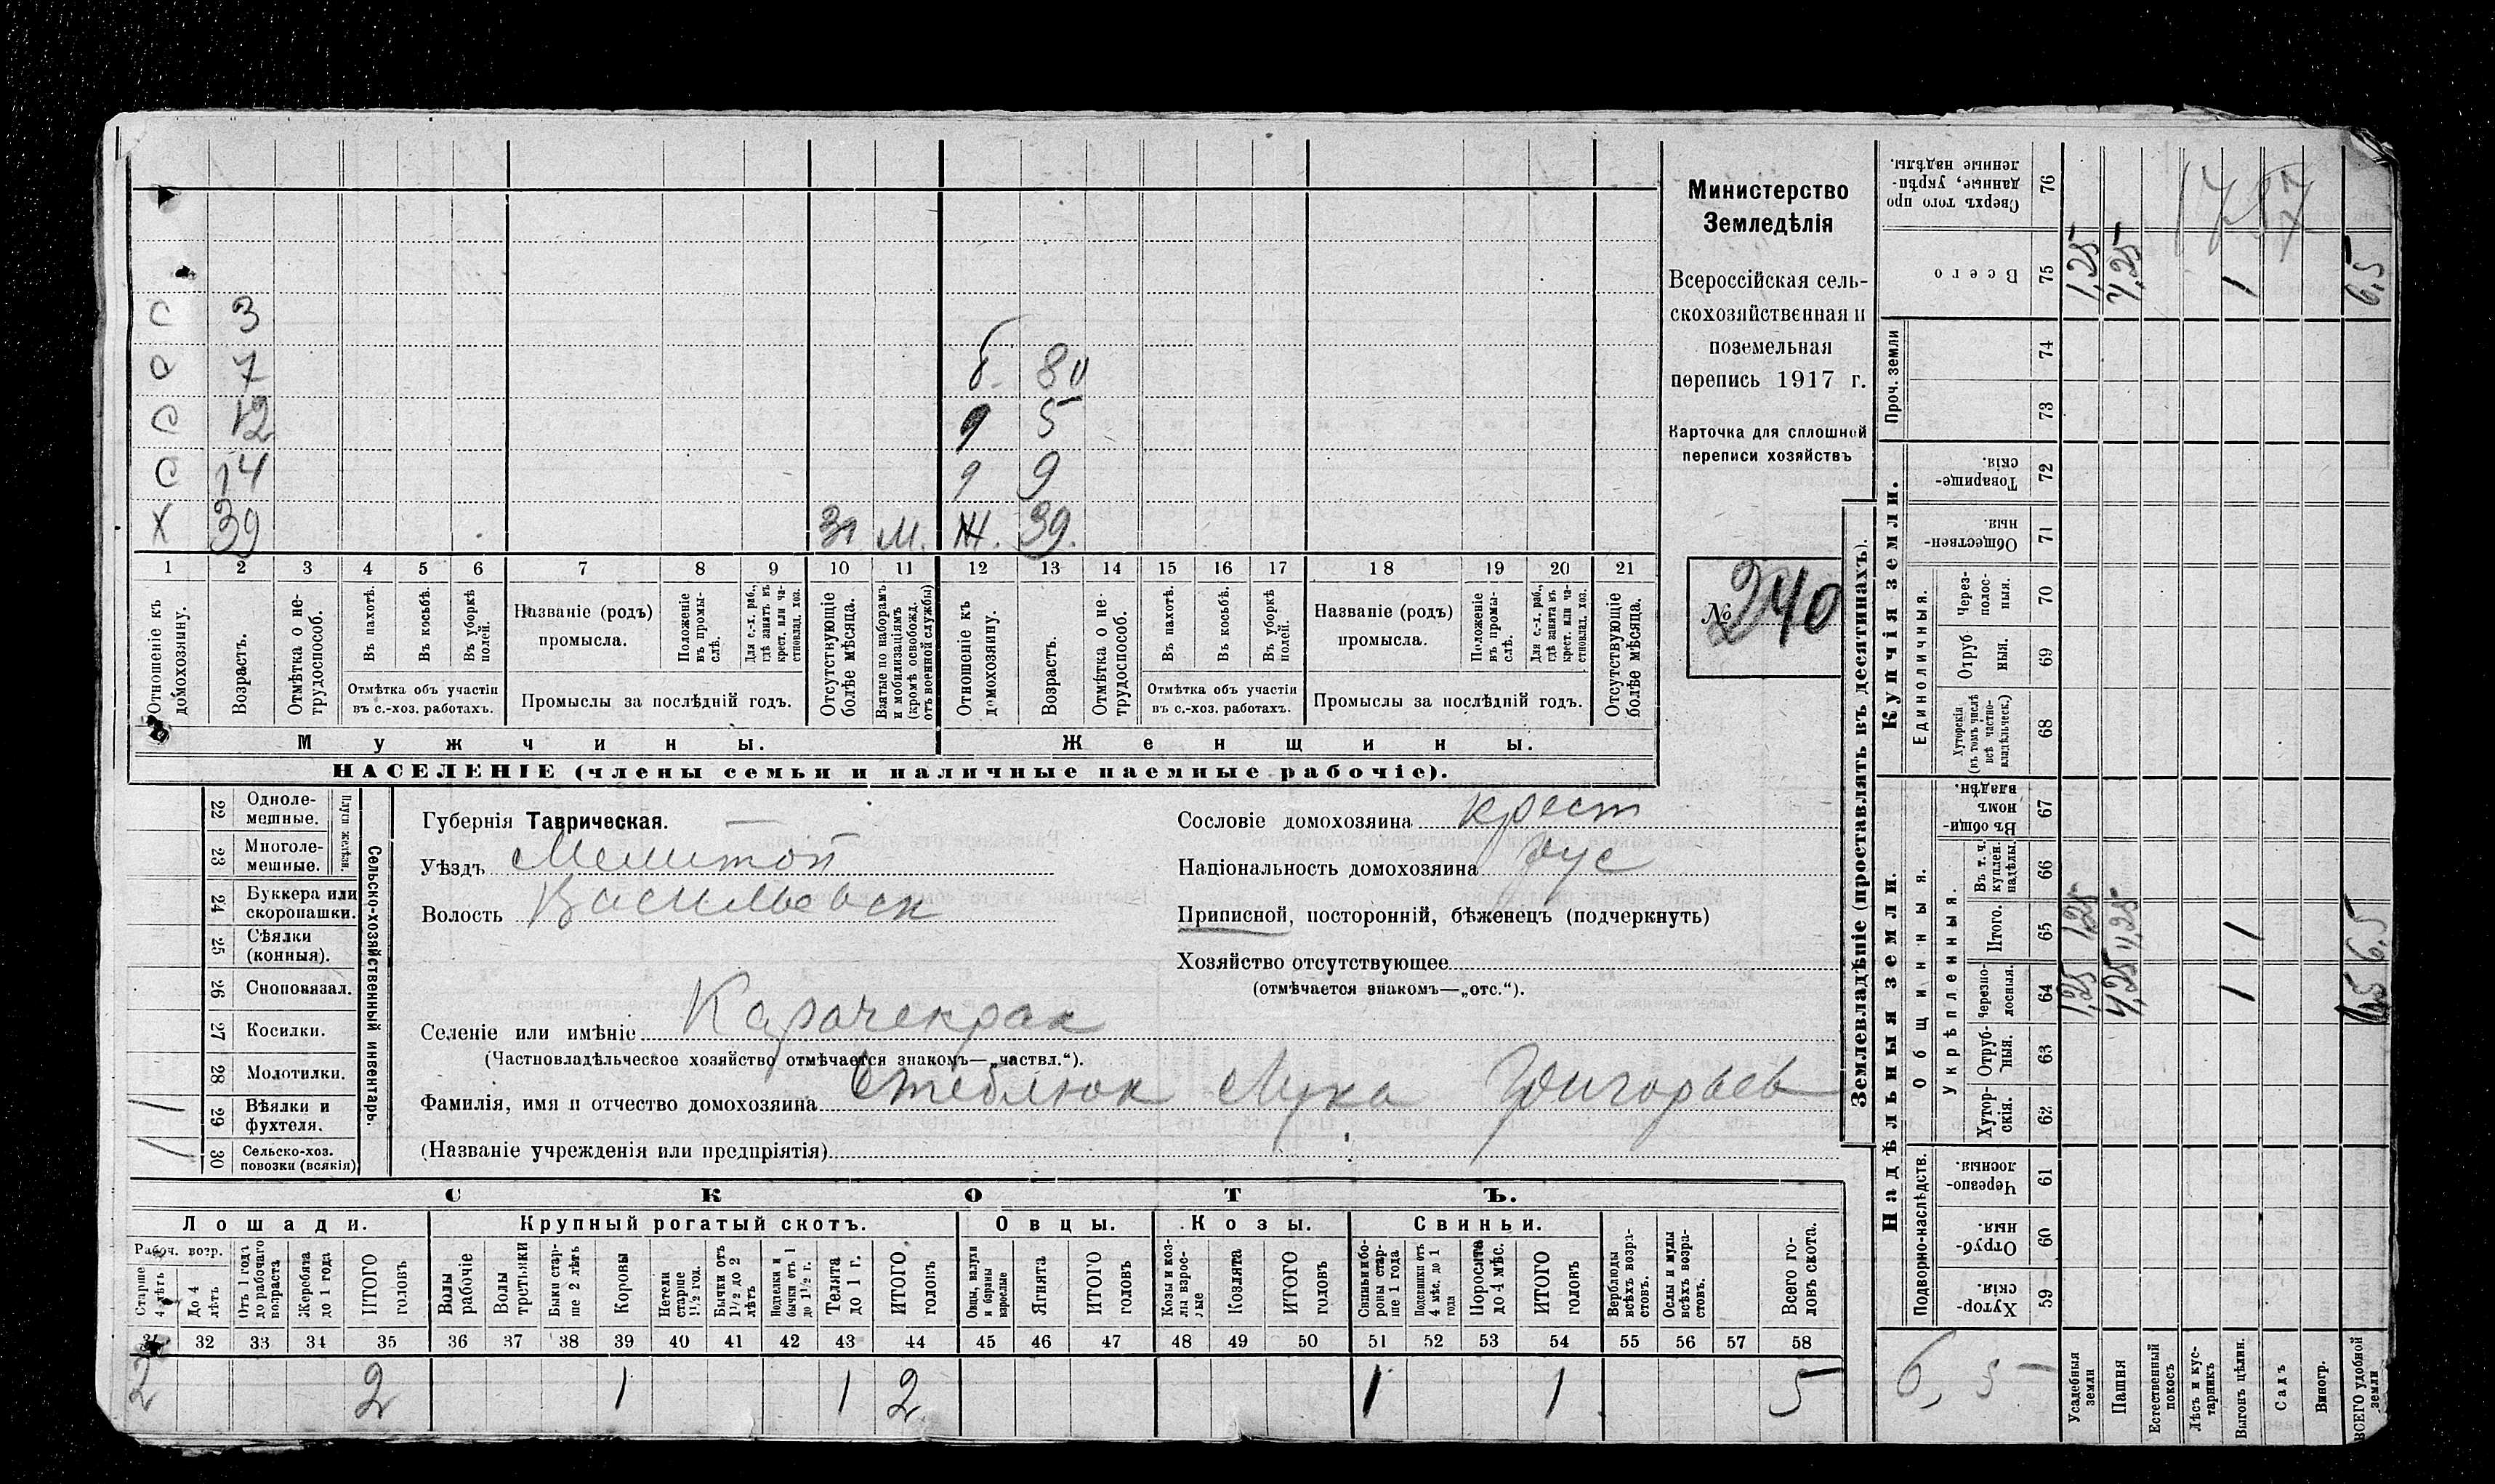 С 3
С 7 б. 80
С 12 д 5
С 14 д 9
Х 39 м. Ж. 39.
1 2 3 4 5 6 7 8 9 10 11 12 13 14 15 16 17 18 19 20 21
Отношеніе къ домохозяину.
Возрастъ.
Отмѣтка о нетрудоспособ.
Въ пахотѣ.
Въ косьбѣ.
Въ уборкѣ полей.
Отмѣтка объ участіи
въ с.-хоз. работахъ.
Названіе (родъ)
промысла.
Положеніе въ промыслѣ.
Для с.-х. раб., гдѣ занятъ въ крест. или частновлад. хоз.
Промыслы за послѣдній годъ.
Отсутствующіе болѣе мѣсяца.
Взятые по наборамъ и мобилизаціямъ (кромѣ освобожд. отъ военной службы)
Отношеніе къ домохозяину.
Возрастъ.
Отмѣтка о нетрудоспособ.
Въ пахотѣ.
Въ косьбѣ.
Въ уборкѣ полей.
Отмѣтка объ участіи
въ с.-хоз. работахъ.
Названіе (родъ)
промысла.
Положеніе въ промыслѣ.
Для с.-х. раб., гдѣ занятъ въ крест. или частновлад. хоз.
Промыслы за послѣдній годъ.
Отсутствующіе болѣе мѣсяца.
Мужчины. Женщины.
НАСЕЛЕНІЕ (члены семьи и наличные наемные рабочіе).
Министерство
Земледѣлія
Всероссійская сель-
скохозяйственная и
поземельная
перепись 1917 г.
Карточка для сплошной
переписи хозяйствъ
№ 240
Сельско-хозяйственный инвентарь.
Плуги желѣзн.
22 Одноле-
мешные.
23 Многоле-
мешные.
24 Буккера или
скоропашки.
25 Сѣялки
(конныя).
26 Сноповязал.
27 Косилки.
28 Молотилки.
1 29 Вѣялки и
фухтеля.
1 30 Сельско-хоз.
повозки (всякія)
Губернія Таврическая.
Уѣздъ Мелитоп
Волость Васильевск
Селеніе или имѣніе Карачекрак
(Частновладѣльческое хозяйство отмѣчается знакомъ—„частвл.“).
Фамилія, имя и отчество домохозяина Стеблюк Лука Григорьев
(Названіе учрежденія или предпріятія)
Сословіе домохозяина крест
Національность домохозяина рус
Приписной, посторонній, бѣженецъ (подчеркнуть)
Хозяйство отсутствующее
(отмѣчается знакомъ—„отс.“).
СКОТЪ.
Лошади. Крупный рогатый скотъ. Овцы. Козы. Свиньи.
Рабоч. возр.
Старше 4 лѣтъ
До 4 лѣтъ
Отъ 1 годъ до рабочаго возраста
Жеребята до 1 года
ИТОГО головъ
Волы рабочіе
Волы третьяки
Быки старше 2 лѣтъ
Коровы
Нетели старше 1½ год.
Бычки отъ 1½ до 2 лѣтъ
бычки отъ 1 до 1½ г.
Телята до 1 г.
ИТОГО головъ
Овцы, валухи и бараны взрослые
Ягнята
ИТОГО головъ
Козы и козлы взрослые
Козлята
ИТОГО головъ
Свиньи и боровы старше 1 года
Подсвинки отъ 4 мѣс. до 1 года
Поросята до 4 мѣс.
ИТОГО головъ
Верблюды всѣхъ возрастовъ.
Ослы и мулы всѣхъ возрастовъ.
Всего головъ скота.
31 32 33 34 35 36 37 38 39 40 41 42 43 44 45 46 47 48 49 50 51 52 53 54 55 56 57 58
2 2 1 1 2 1 1 5
Землевладѣніе (проставлять въ десятинахъ).
Надѣльныя земли. Купчія земли. Проч. земли
Подворно-наслѣдств. Общинныя. Укрѣпленныя. Единоличныя.
Хуторскія. 59
Отрубныя. 60
Черезполосныя. 61
Хуторскія. 62
Отрубныя. 63
Черезполосныя. 64 1,25 4,25 1 6,5
Итого. 65 1,25 4,25 1 6,5
Въ т. ч. куплен. надѣлы. 66
Въ общинномъ владѣн. 67
Хуторскія (въ томъ числѣ всѣ частновладѣльческ.) 68
Отрубныя. 69
Черезполосныя. 70
Общественныя. 71
Товарищескія. 72
73
74
Всего 75 1,25 4,25 1 6,5
Сверхъ того проданные, укрѣпленные надѣлы. 76
6,5
Усадебныя земли
Пашня
Естественный покосъ
Лѣсъ и кустарникъ
Выгонъ цѣлин.
Садъ
Виногр.
ВСЕГО удобной земли